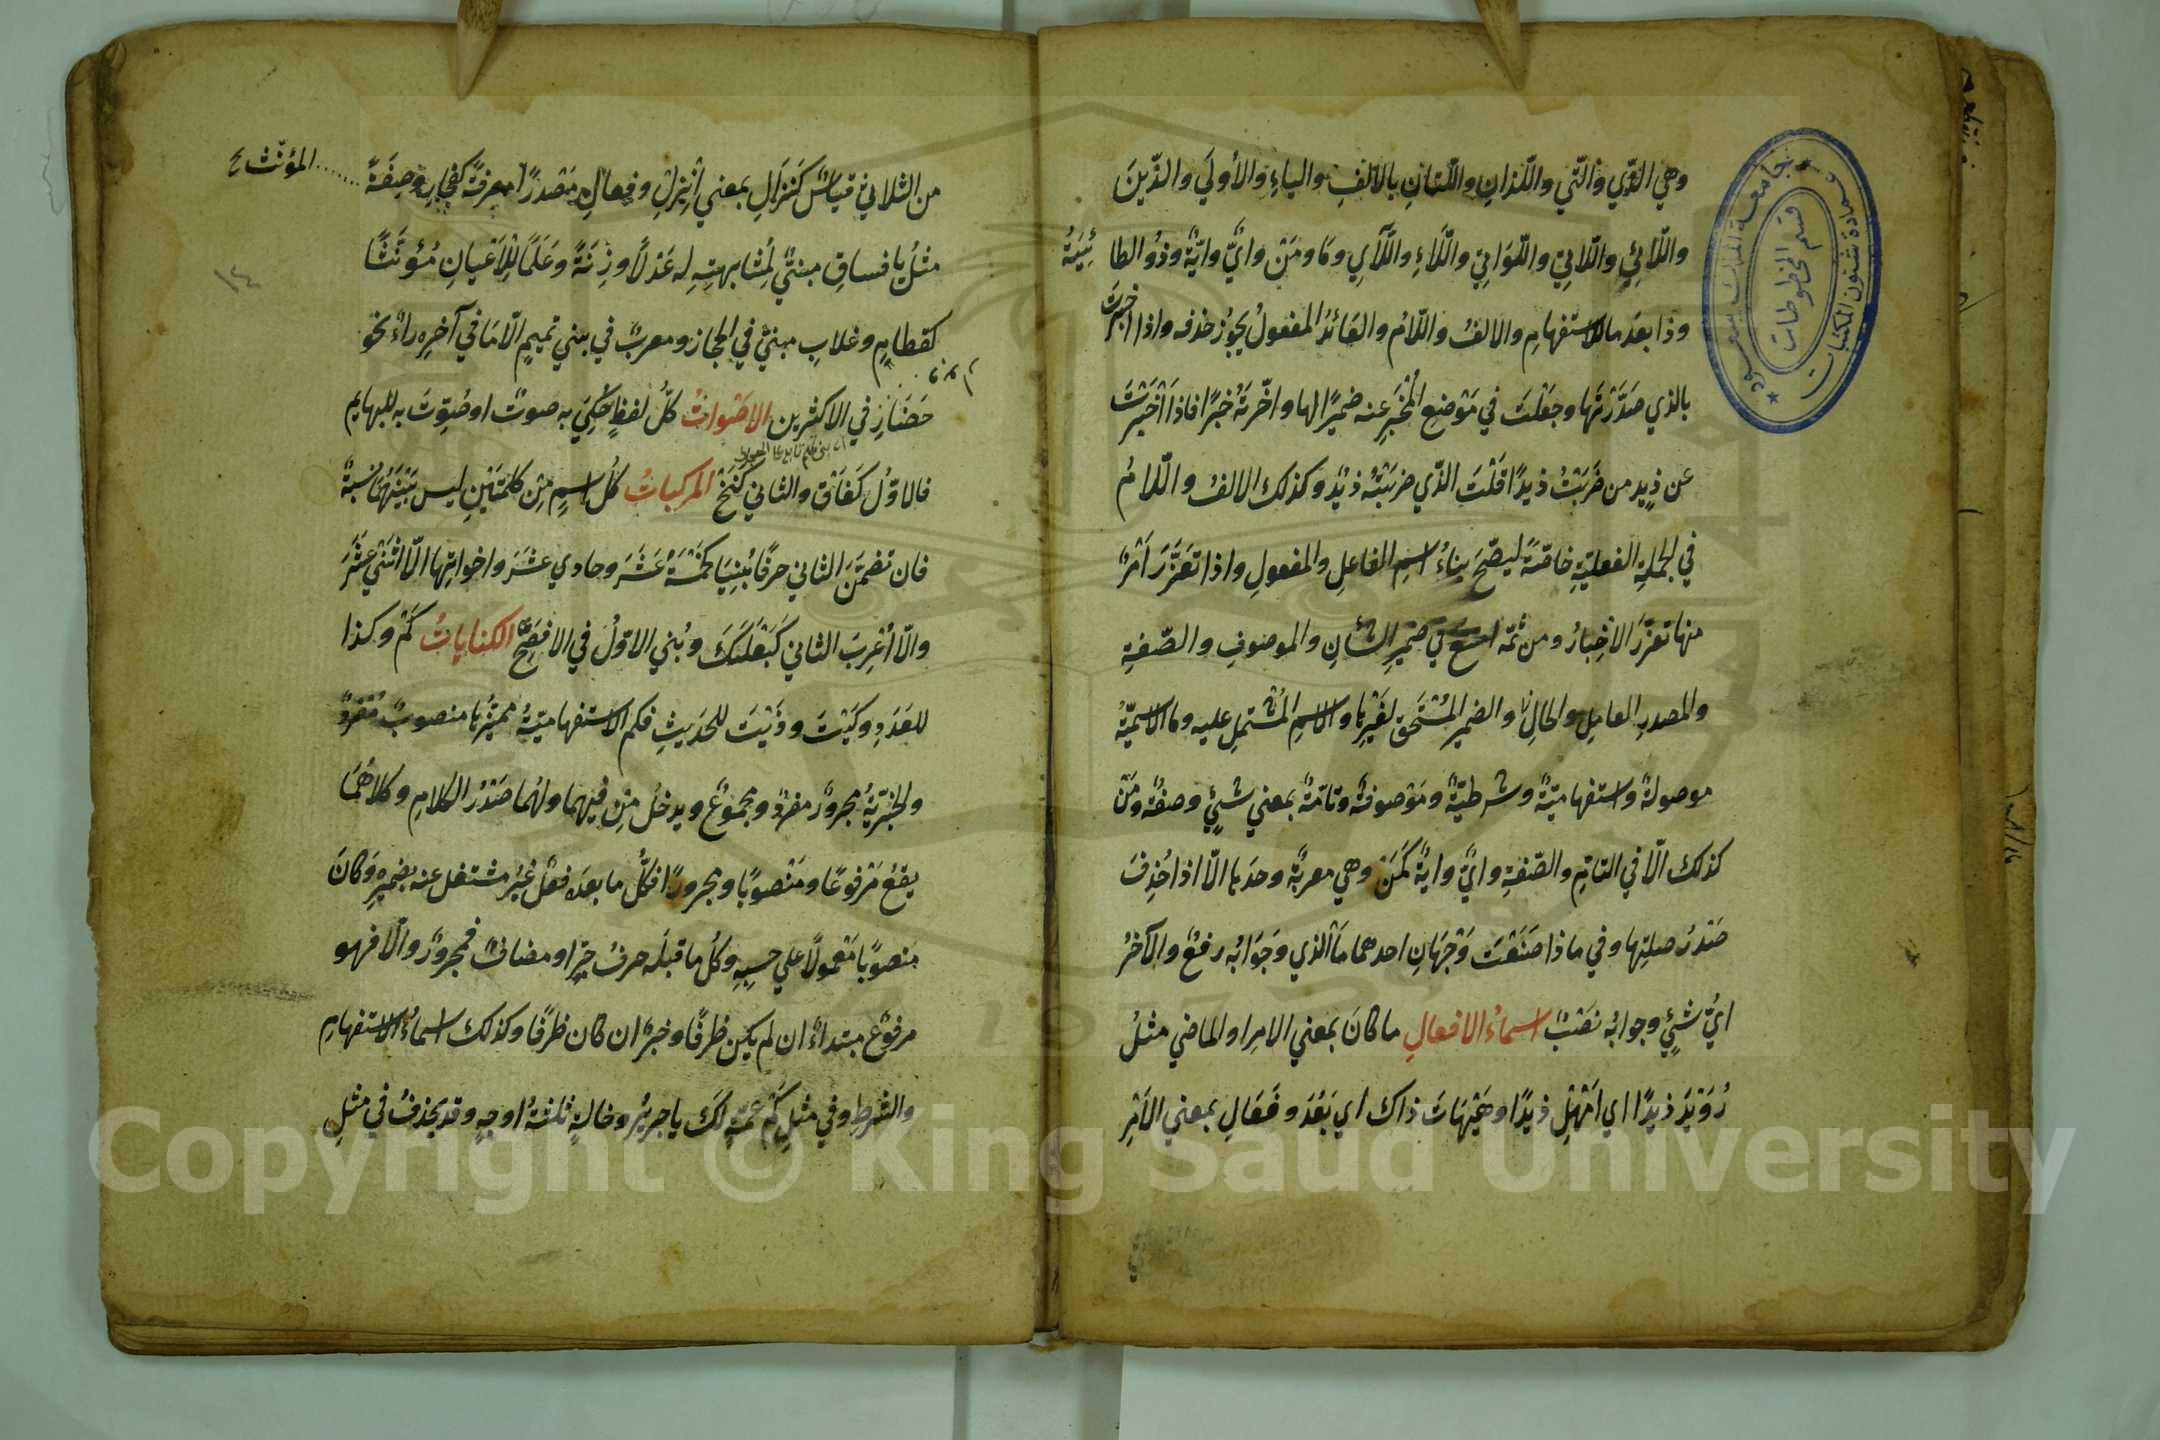 وهي الذّي والتّي واللّذانِ واللّتانِ بالألفِ والياءِ والأُولَي والذّينَ
واللّائي واللّاتي واللّوَاتي واللّاءِ واللّآي ومَا ومَنْ وايٌّ وايّةٌ وذُو الطائِيّةُ
وذا بعدَ ما للاستفهامِ والالفُ واللّامُ والعَائدُ المفعولُ يجوُز حذفه واذا اخبرتَ
بالذي صَدَّرْتَها وجعَلْتَ في مَوْضِعِ المُخْبَرِ عنه ضميرًا لها واخّرتَهُ خبرًا فاذا اَخْبَرْتَ
عن زيدٍ من ضَرَبْتُ زيدًا قلْتَ الذّي ضربتُهُ زيدٌ وكذلك الالفُ واللّامُ
في الجملةِ الفعليّةِ خاصّةً ليصّحَ بِناءُ اسمِ الفاعلِ والمفعولِ واذا تَعَذَّرَ اَمْرٌ
منها تعذّرَ الاخْبارُ ومن ثمّه امتنع في ضميرِ الشّانِ والموصوفِ والصّفةِ
والمصدرِ العاملِ والحالِ والضميرِ المُسْتَحَقِّ لغَيْرِها والاسمِ المُشتملِ عليه وما الاسميّةُ
موصولةٌ واستفهاميّةٌ وشرطيّةٌ ومَوْصوفةٌ وتامّةٌ بمعني شيْءٍ وصفةٌ ومَنْ
كذلك الّا في التامّةِ والصّفةِ وايٌّ وايةٌ كمَنْ وهي معربةٌ وحدَها الّا اذا حُذِفَ
صَدْرُ صلتِها وفي ماذا صَنَعْتَ وَجْهَانِ احدهما مَا الّذي وجَوَابُه رفعٌ والآخرُ
ايُّ شيْءٍ وجوابُه نصَبٌ اسماءُ الافعالِ ما كانَ بمعني الامرِ او الماضي مثلُ
رُوَيْدَ زيدًا اي امْهِلْ زيدًا وهَيْهَاتَ ذاك اي بَعُدَ وفَعَالِ بمعني الاَمْرِ
جامعة الملك سعود
عمادة شئون المكتبات
قسم المخطوطات
من الثلاثي قياسٌ كَنَزَالِ بمعني اِنْزِلْ وفعالِ مَصْدرًا معرفةً كفَجَارِ وصِفَةً
المؤنّث
مثلُ يا فساقِ مبنيٌّ لِمُشابهتِهِ له عَدْلًا وزِنَةً وعَلَمًا لِلْاَعْيانِ مُؤنّثًا
كقطامِ وغلابِ مبنيٌّ في الحجاز ومعربٌ في بني تميمٍ الّا مَا في آخرِه راءٌ نحوُ
حَضَارِ في الاكثرين الاصْواتُ كلُّ لفظٍ حُكِيَ به صوتٌ او صُوِّتَ به للبهايمِ
فالاوّلُ كَغاقْ والثاني كَنَخْ المركّباتُ كلُّ اسمٍ مِن كلمَتَيْنِ ليس بَيْنَهُما نسْبةٌ
فان تضمّنَ الثاني حرفًا بُنِيَا كَخَمْسَةَ عَشَرَ وحادي عشَرَ واخواتِها الّا اثنَيْ عَشَرَ
والّا اُعْرِبَ الثاني كَبَعْلَبَكَّ وبُني الاوّلُ في الافصَحِ الكناياتُ كَمْ وكذا
للعَدَدِ وكَيْتَ وذَيْتَ للحَدِيثِ فكم الاستفهاميّةُ مميّزُها منصوبٌ مُفرَدٌ
والخبريّةُ مجرورٌ مفردٌ ومجموعٌ ويدخلُ مِن فيهما ولهُما صَدْرُ الكلامِ وكلاهُمَا
يقعُ مَرْفوعًا ومَنْصوبًا ومجرورًا فكلُّ ما بعدَه فعلٌ غيرُ مشتغلٍ عنه بضميرِه كَانَ
مَنصوبًا مَعْمولًا علي حسبِهِ وكلُّ ما قبلَه حرفُ جرٍّ او مضافٌ فمجرورٌ والّا فهو
مرفوعٌ مبتداءٌ ان لم يكن ظرفًا وخبرٌ ان كان ظرفًا وكذلك اسماءُ الاستفهامِ
والشرطِ وفي مثلِ كَمْ عمّةٍ لكَ يا جريرُ وخالةٍ ثلثةُ اوجهٍ وقد يحذفُ في مثلِ
Copyright © King Saud University